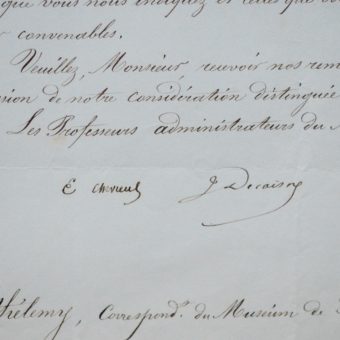 que vous nous indiquez et celles que
convenables.
Veuillez, Monsieur, recevoir nos rem
sion de notre considération distinguée
Les Professeurs administrateurs du M
E Chevreul J Decaisne
thélemy, Correspond.t du Muséum de